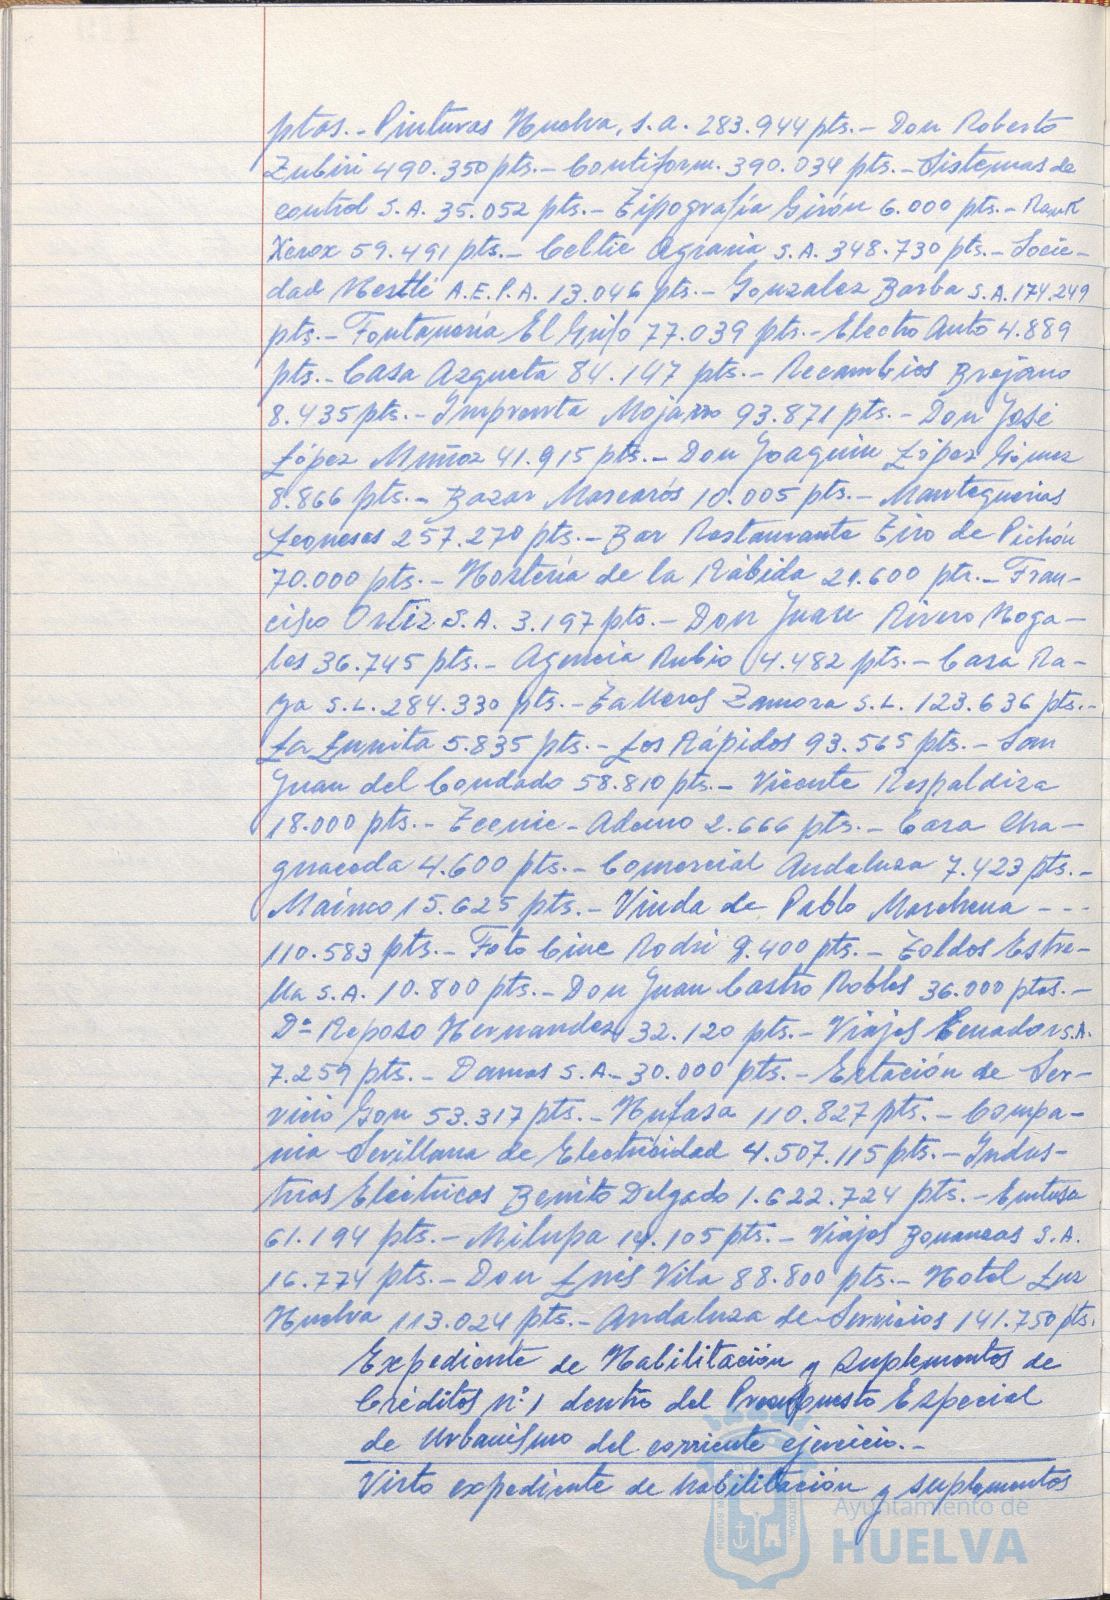 ptas.- Pinturas Huelva, S.A. 283.944 pts.- Don Roberto
Zubiri 490.350 pts.- Contiform. 390.034 pts.- Sistemas de
control S.A. 35.052 pts.- Tipografía Girón 6.000 pts.- Rank
Xerox 59.491 pts.- Celtic Agraria S.A. 348.730 pts.- Socie-
dad Nestlé A.E.P.A. 13.046 pts.- Gonzalez Barba S.A. 174.249
pts.- Fontanería El Grifo 77.039 pts.- Electro Auto 4.889
pts.- Casa Azqueta 84.147 pts.- Recambios Brejano
8.435 pts.- Imprenta Mojarro 93.871 pts.- Don José
López Muñoz 41.915 pts.- Don Joaquin López Gómez
8.866 pts.- Bazar Mascarós 10.005 pts.- Mantequerias
Leonesas 257.270 pts.- Bar Restaurante Tiro de Pichón
70.000 pts.- Hostería de la Rábida 21.600 pts.- Fran-
cisco Ortiz S.A. 3.197 pts.- Don Juan Rivero Noga-
les 36.745 pts.- Agencia Rubio 4.482 pts.- Casa Ra-
ya S.L. 284.330 pts.- Talleres Zamora S.L. 123.636 pts.-
La Lunita 5.835 pts.- Los Rápidos 93.565 pts.- San
Juan del Condado 58.810 pts.- Vicente Respaldiza
18.000 pts.- Tecnic-Ademo 2.666 pts.- Casa Cha-
guaceda 4.600 pts.- Comercial Andaluza 7.423 pts.-
Maimco 15.625 pts.- Viuda de Pablo Marchena - - -
110.583 pts.- Foto Cine Rodri 9.400 pts.- Toldos Estre-
lla S.A. 10.800 pts.- Don Juan Castro Robles 36.000 ptas.-
Dª Reposo Hernandez 32.120 pts.- Viajes Ecuador S.A.
7.259 pts.- Damas S.A.- 30.000 pts.- Estación de Ser-
vicio Gon 53.317 pts.- Hufasa 110.827 pts.- Compa-
nia Sevillana de Electricidad 4.507.115 pts.- Indus-
trias Eléctricas Benito Delgado 1.622.724 pts.- Emtusa
61.194 pts.- Milupa 14.105 pts.- Viajes Bonanzas S.A.
16.774 pts.- Don Luis Vila 88.800 pts.- Hotel Luz
Huelva 113.024 pts.- Andaluza de Servicios 141.750 pts.
Expediente de Habilitación y suplementos de
Créditos n.º 1 dentro del Presupuesto Especial
de Urbanismo del corriente ejercicio.-
Visto expediente de habilitación y suplementos
Ayuntamiento de
HUELVA